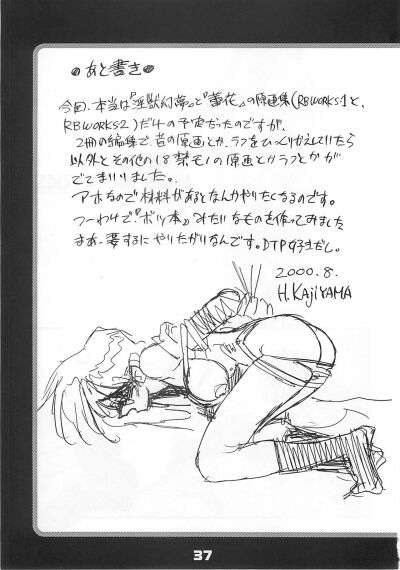 ●あと書き●
今回、本当は『淫獣幻夢』と『蕾花』の原画集(RBWORKS1と、
RBWORKS2)だけの予定だったのですが、
2冊の編集で、昔の原画とか、ラフをひっくりかえしていたら
以外とその他の18禁モノの原画とかラフとかが
でてまいりました。
アホなので材料があるとなんかやりたくなるのです。
つーわけで『ボツ本』みたいなものを作ってみました
まあ、要するにやりたがりなんです。DTP好きだし。
2000.8.
H.KAJIYAMA
37